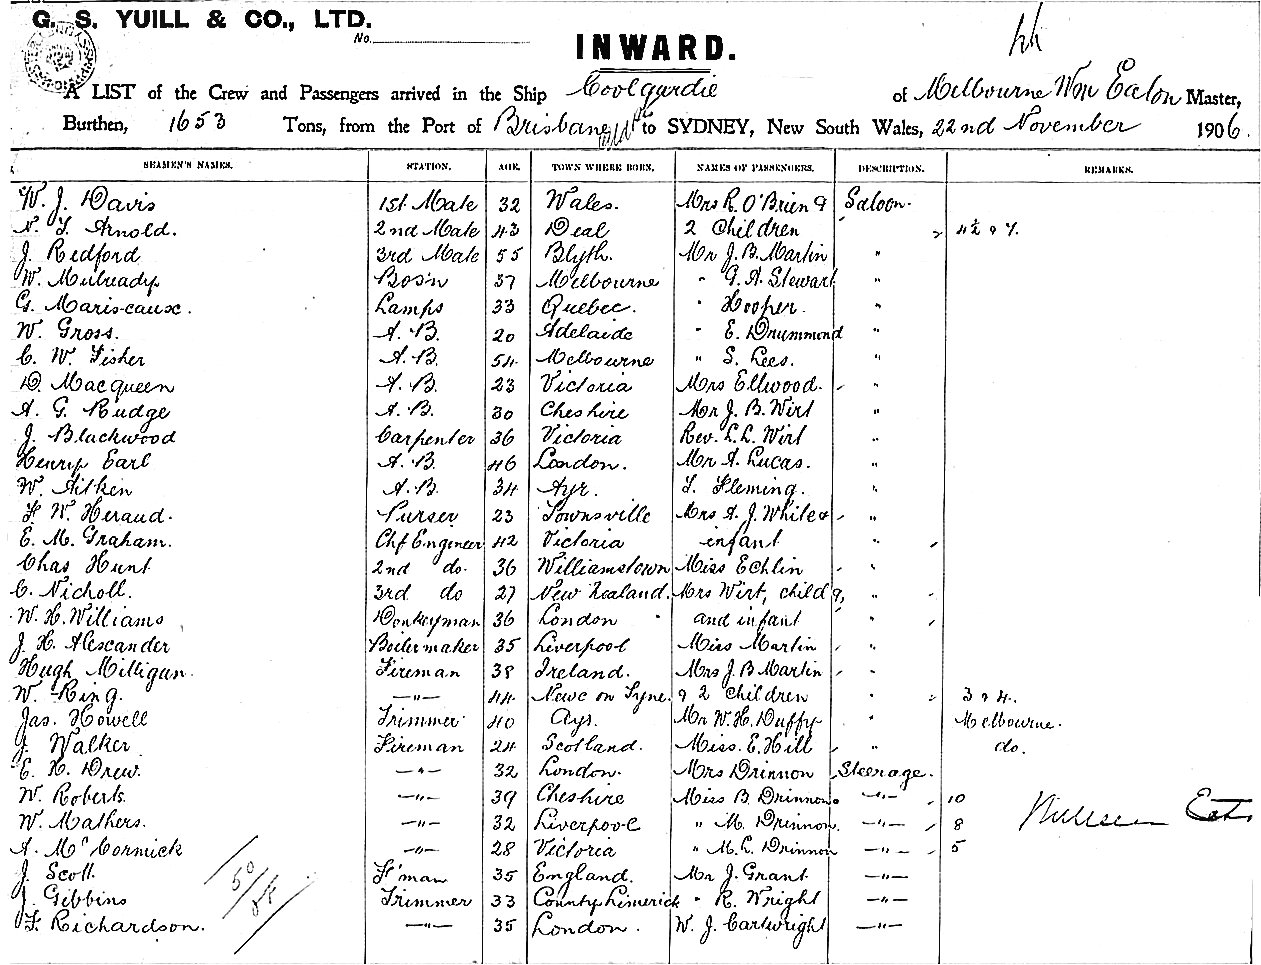 G. S. YUILL & CO., LTD.
No.
INWARD.
A LIST of the Crew and Passengers arrived in the Ship Coolgardie of Melbourne Wm Eaton Master,
Burthen, 1653 Tons, from the Port of Brisbane to SYDNEY, New South Wales, 22nd November 1906.
SEAMEN'S NAMES. STATION. AGE. TOWN WHERE BORN. NAMES OF PASSENGERS. DESCRIPTION. REMARKS.
W. J. Davis 1st Mate 32 Wales. Mrs R. O'Brien & Saloon.
N. T. Arnold. 2nd Mate 43 Deal 2 Children " 4½ & 7.
J. Redford 3rd Mate 55 Blyth. Mr J. B. Martin "
W. Mulready Bos'n 37 Melbourne " G. A. Stewart "
G. Mariscause. Lamps 33 Quebec. " Hooper. "
W. Gross. A. B. 20 Adelaide " E. Drummond "
C. W. Fisher A. B. 54 Melbourne " S. Lees. "
D. MacQueen A. B. 23 Victoria Mrs Ellwood. "
A. G. Rudge A. B. 30 Cheshire Mr J. B. Wirt "
J. Blackwood Carpenter 36 Victoria Rev. L. L. Wirt "
Henry Earl A. B. 46 London. Mr A. Lucas. "
W. Aitken A. B. 34 Ayr. T. Fleming. "
F. W. Heraud. Purser 23 Townsville Mrs A. J. White & "
E. M. Graham. Chf Engineer 42 Victoria infant "
Chas Hunt 2nd do. 36 Williamstown Miss Echlin "
C. Nicholl. 3rd do 27 New Zealand. Mrs Wirt, child &, "
W. H. Williams Donkeyman 36 London and infant "
J. H. Alexander Boilermaker 35 Liverpool Miss Martin "
Hugh Milligan. Fireman 38 Ireland. Mrs J. B. Martin "
W. King. —"— 44 Newc on Tyne. & 2 Children " 3 & 4.
Jas. Howell Trimmer 40 Ayr. Mr W. H. Duffy " Melbourne.
J. Walker Fireman 24 Scotland. Miss. E. Hill " do.
E. H. Drew. —"— 32 London. Mrs Drinnon Steerage.
W. Roberts. —"— 39 Cheshire Miss B. Drinnon. —"— 10
W. Mathers. —"— 32 Liverpool " M. Drinnon. —"— 8
A. McCormick —"— 28 Victoria " M. L. Drinnon —"— 5
J. Scott. F'man 35 England. Mr J. Grant —"—
J. Gibbins Trimmer 33 County Limerick " R. Wright —"—
F. Richardson. —"— 35 London. W. J. Cartwright —"—